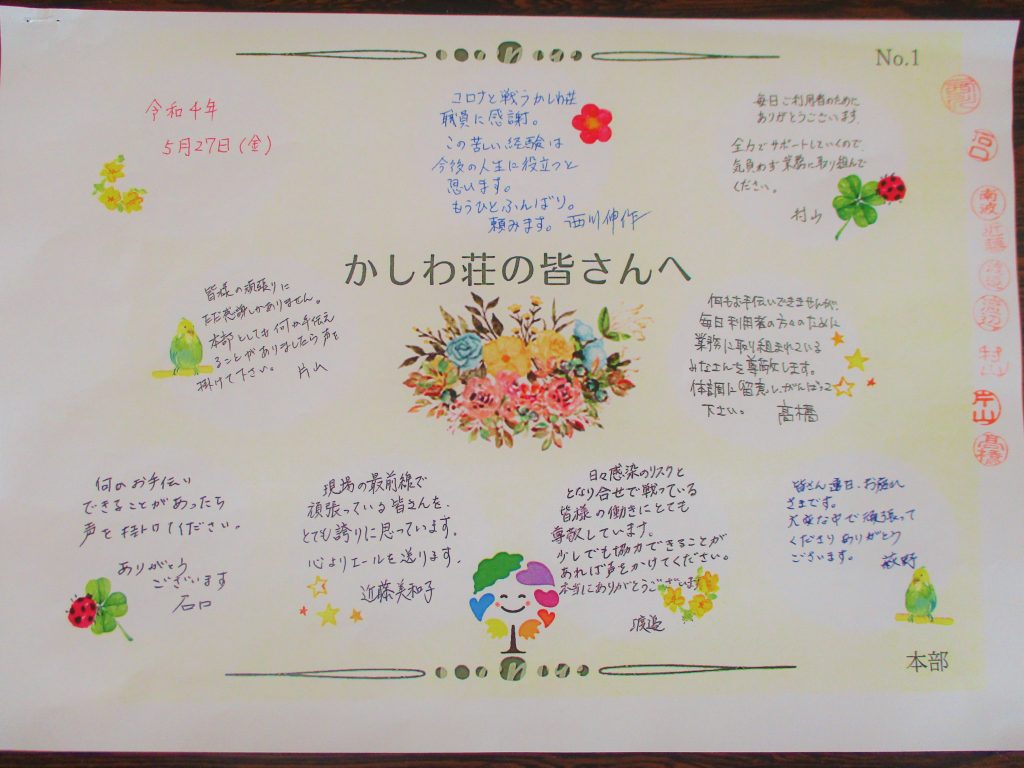 No.1
令和4年
5月27日(金)
コロナと戦うかしわ荘
職員に感謝。
この苦しい経験は
今後の人生に役立つと
思います。
もうひとふんばり。
頼みます。 西川伸作
毎日ご利用者のために
ありがとうございます。
全力でサポートしていくので
気負わず業務に取り組んで
ください。
村山
かしわ荘の皆さんへ
皆様の頑張りに
ただただ感謝しかありません。
本部としても何か手伝え
ることがありましたら声を
掛けて下さい。 片山
何もお手伝いできませんが、
毎日利用者の方々のために
業務に取り組まれている
みなさんを尊敬します。
体調に留意し、がんばって
下さい。 高橋
何のお手伝い
できることがあったち
声を掛けてください。
ありがとう
ございます
石口
現場の最前線で
頑張っている皆さんを、
とても誇りに思っています。
心よりエールを送ります。
近藤美和子
日々感染のリスクと
となり合せで戦っている
皆様の働きにとても
尊敬しています。
少しでも協力できることが
あれば声をかけてください。
本当にありがとうございます
渡辺
皆さん連日、お疲れ
さまです。
大変な中で頑張って
くださりありがとう
ございます。
荻野
本部
石口
南波
近藤
渡辺
村山
片山
高橋